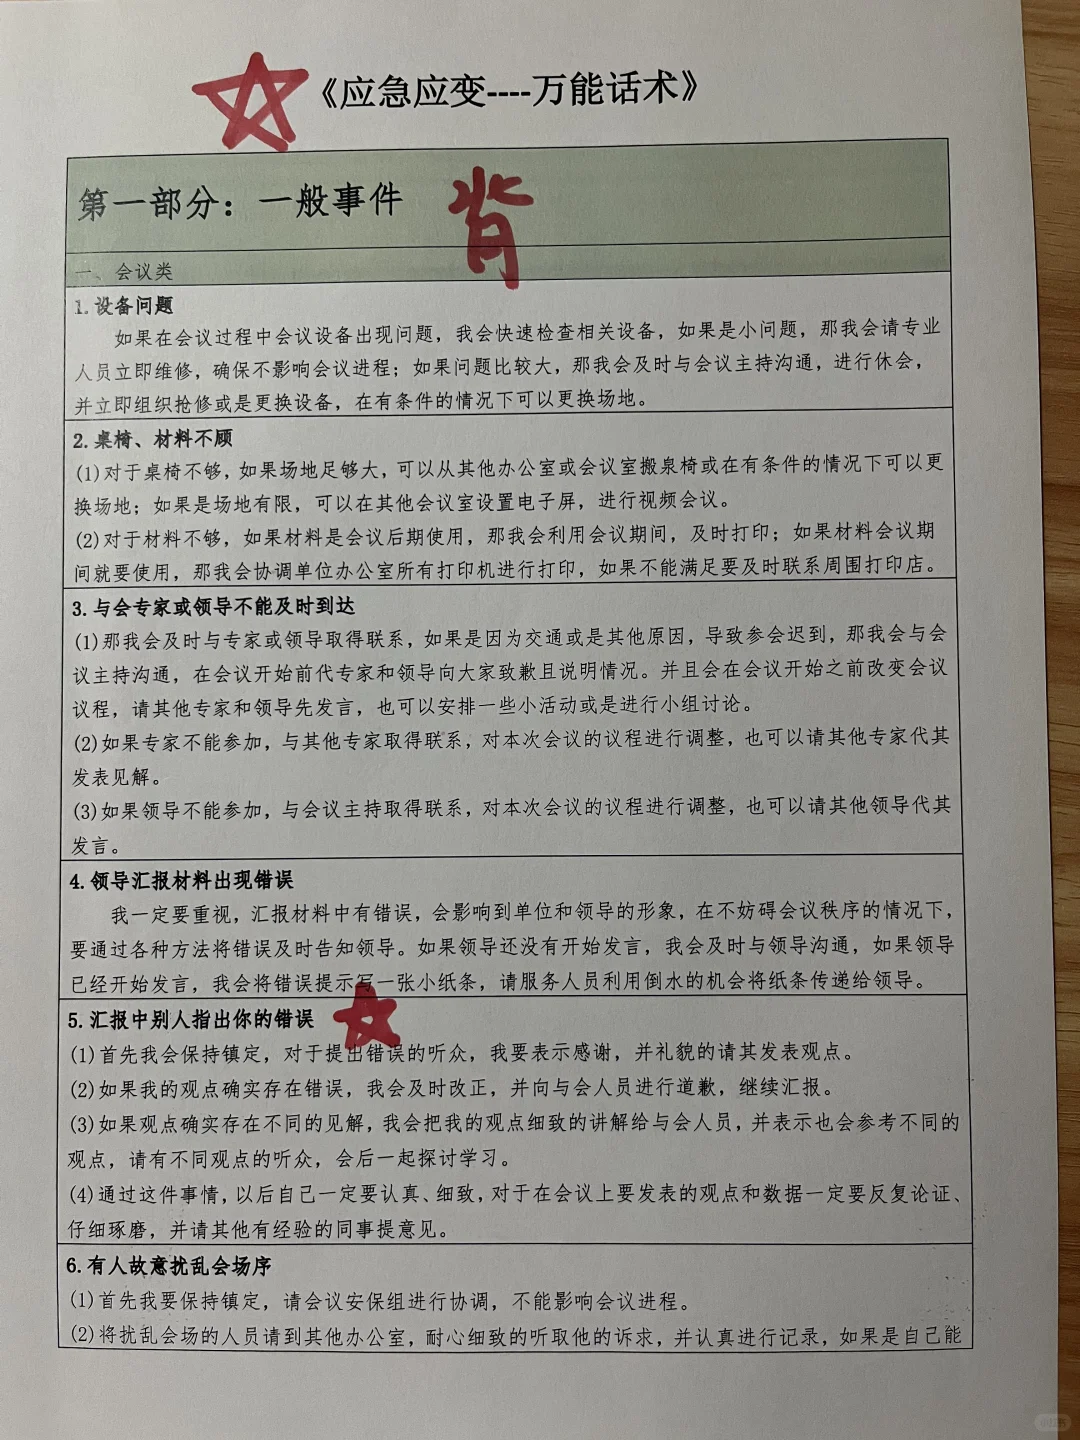 《应急应变----万能话术》
第一部分：一般事件
背
一、会议类
1.设备问题
如果在会议过程中会议设备出现问题，我会快速检查相关设备，如果是小问题，那我会请专业
人员立即维修，确保不影响会议进程；如果问题比较大，那我会及时与会议主持沟通，进行休会，
并立即组织抢修或是更换设备，在有条件的情况下可以更换场地。
2.桌椅、材料不顾
(1)对于桌椅不够，如果场地足够大，可以从其他办公室或会议室搬泉椅或在有条件的情况下可以更
换场地；如果是场地有限，可以在其他会议室设置电子屏，进行视频会议。
(2)对于材料不够，如果材料是会议后期使用，那我会利用会议期间，及时打印；如果材料会议期
间就要使用，那我会协调单位办公室所有打印机进行打印，如果不能满足要及时联系周围打印店。
3.与会专家或领导不能及时到达
(1)那我会及时与专家或领导取得联系，如果是因为交通或是其他原因，导致参会迟到，那我会与会
议主持沟通，在会议开始前代专家和领导向大家致歉且说明情况。并且会在会议开始之前改变会议
议程，请其他专家和领导先发言，也可以安排一些小活动或是进行小组讨论。
(2)如果专家不能参加，与其他专家取得联系，对本次会议的议程进行调整，也可以请其他专家代其
发表见解。
(3)如果领导不能参加，与会议主持取得联系，对本次会议的议程进行调整，也可以请其他领导代其
发言。
4.领导汇报材料出现错误
我一定要重视，汇报材料中有错误，会影响到单位和领导的形象，在不妨碍会议秩序的情况下，
要通过各种方法将错误及时告知领导。如果领导还没有开始发言，我会及时与领导沟通，如果领导
已经开始发言，我会将错误提示写一张小纸条，请服务人员利用倒水的机会将纸条传递给领导。
5.汇报中别人指出你的错误
(1)首先我会保持镇定，对于提出错误的听众，我要表示感谢，并礼貌的请其发表观点。
(2)如果我的观点确实存在错误，我会及时改正，并向与会人员进行道歉，继续汇报。
(3)如果观点确实存在不同的见解，我会把我的观点细致的讲解给与会人员，并表示也会参考不同的
观点，请有不同观点的听众，会后一起探讨学习。
(4)通过这件事情，以后自己一定要认真、细致，对于在会议上要发表的观点和数据一定要反复论证、
仔细琢磨，并请其他有经验的同事提意见。
6.有人故意扰乱会场序
(1)首先我要保持镇定，请会议安保组进行协调，不能影响会议进程。
(2)将扰乱会场的人员请到其他办公室，耐心细致的听取他的诉求，并认真进行记录，如果是自己能